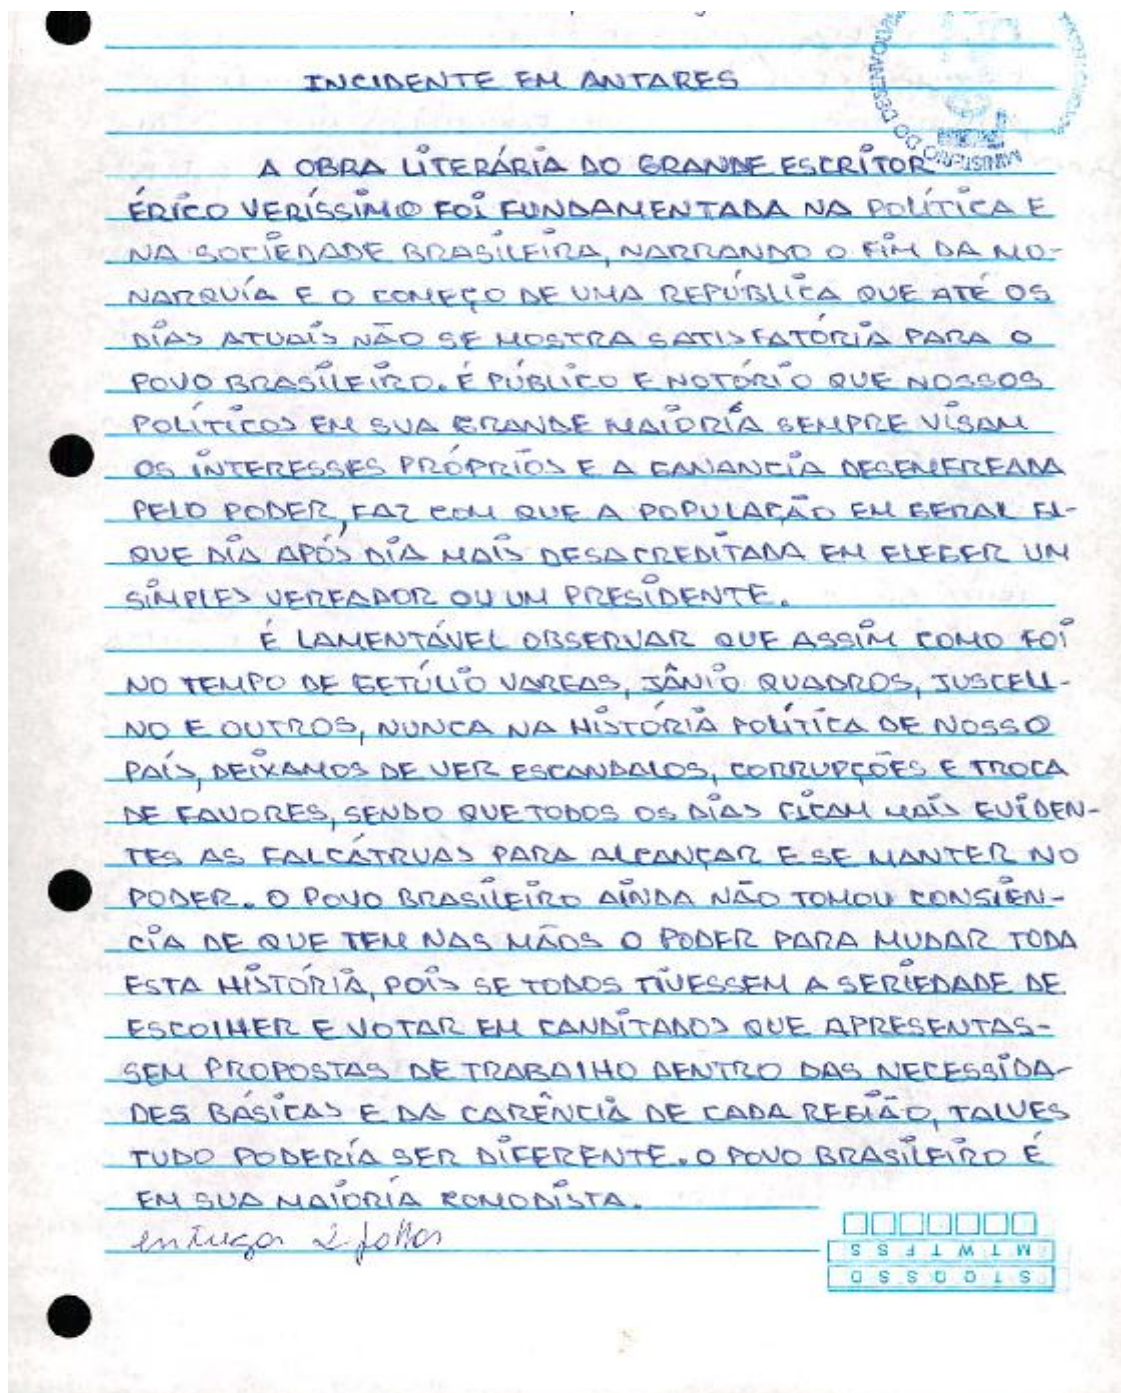 INCIDENTE EM ANTARES
A OBRA LITERÁRIA DO GRANDE ESCRITOR
ÉRICO VERÍSSIMO FOI FUNDAMENTADA NA POLÍTICA E
NA SOCIEDADE BRASILEIRA, NARRANDO O FIM DA MO-
NARQUIA E O COMEÇO DE UMA REPÚBLICA QUE ATÉ OS
DIAS ATUAIS NÃO SE MOSTRA SATISFATÓRIA PARA O
POVO BRASILEIRO. É PÚBLICO E NOTÓRIO QUE NOSSOS
POLÍTICOS EM SUA GRANDE MAIORIA SEMPRE VISAM
OS INTERESSES PRÓPRIOS E A GANANCIA DESENFREADA
PELO PODER, FAZ COM QUE A POPULAÇÃO EM GERAL FI-
QUE DIA APÓS DIA MAIS DESACREDITADA EM ELEGER UM
SIMPLES VEREADOR OU UM PRESIDENTE.
É LAMENTÁVEL OBSERVAR QUE ASSIM COMO FOI
NO TEMPO DE GETÚLIO VARGAS, JÂNIO QUADROS, JUSCELI-
NO E OUTROS, NUNCA NA HISTÓRIA POLÍTICA DE NOSSO
PAÍS, DEIXAMOS DE VER ESCANDALOS, CORRUPÇÕES E TROCA
DE FAVORES, SENDO QUE TODOS OS DIAS FICAM MAIS EVIDEN-
TES AS FALCÁTRUAS PARA ALCANÇAR E SE MANTER NO
PODER. O POVO BRASILEIRO AINDA NÃO TOMOU CONSIÊN-
CIA DE QUE TEM NAS MÃOS O PODER PARA MUDAR TODA
ESTA HISTÓRIA, POIS SE TODOS TIVESSEM A SERIEDADE DE
ESCOLHER E VOTAR EM CANDITADOS QUE APRESENTAS-
SEM PROPOSTAS DE TRABALHO DENTRO DAS NECESSIDA-
DES BÁSICAS E DA CARÊNCIA DE CADA REGIÃO, TALVES
TUDO PODERIA SER DIFERENTE. O POVO BRASILEIRO É
EM SUA MAIORIA COMODISTA.
entregar 2 folhas
S S F T W T M
D S S Q Q T S